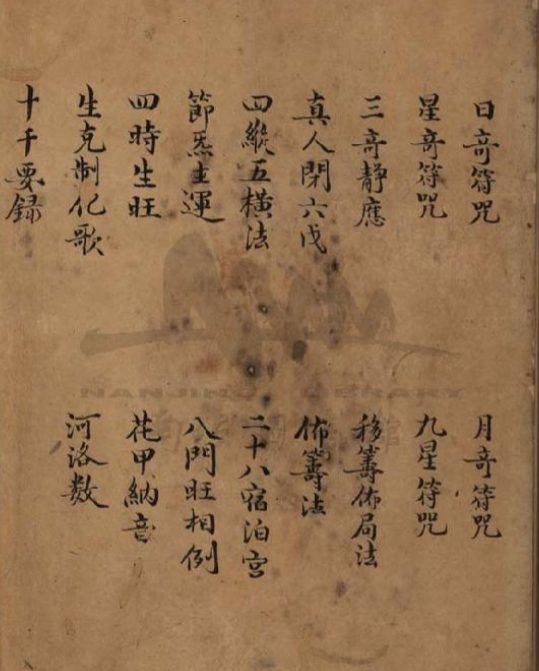 日竒符咒　月竒符咒
星竒符咒　九星符咒
三竒静應　移籌佈局法
真人閉六戊　佈籌法
四縱五横法　二十八宿泊宮
節炁主運　八門旺相例
四時生旺　花甲納音
生克制化歌　河洛数
十千要録
NANJING LIBRARY